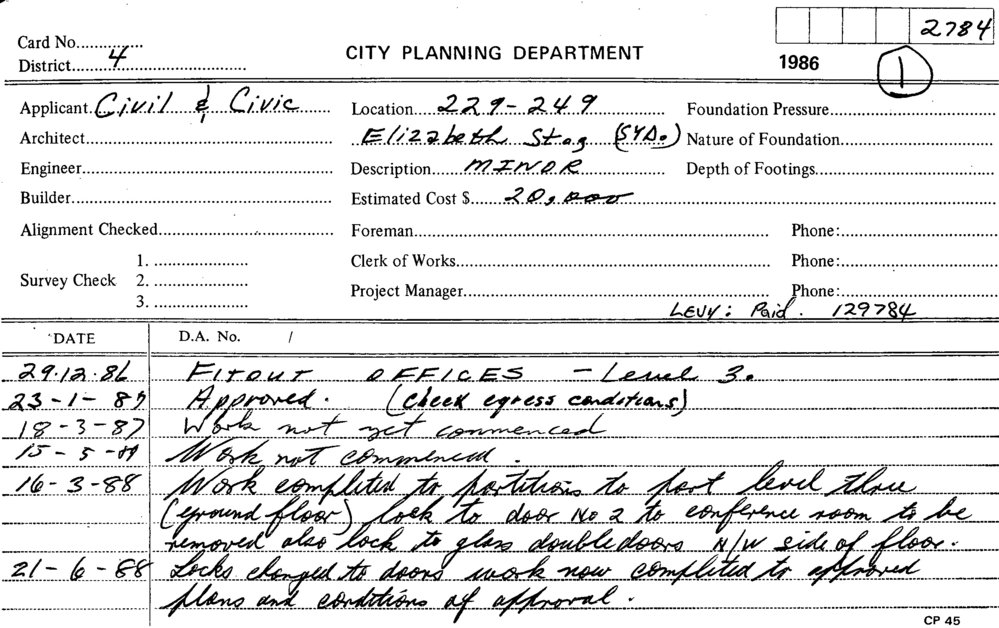 2784
Card No.
District 4
CITY PLANNING DEPARTMENT
1986
1
Applicant Civil & Civic
Location 229-249
Foundation Pressure
Architect
Elizabeth St. (SYD.)
Nature of Foundation
Engineer
Description MINOR
Depth of Footings
Builder
Estimated Cost $ 20,000
Alignment Checked
Foreman
Phone:
Survey Check
1.
2.
3.
Clerk of Works
Phone:
Project Manager
Phone:
LEVY: Paid. 129784
DATE
D.A. No. /
29.12.86 FITOUT OFFICES - Level 3.
23-1-87 Approved. (check egress conditions)
18-3-87 Work not yet commenced
15-5-87 Work not commenced.
16-3-88 Work completed to partitions to part level three
(ground floor) lock to door No 2 to conference room to be
removed also lock to glass double doors N/W side of floor.
21-6-88 Locks changed to doors work now completed to approved
plans and conditions of approval.
CP 45